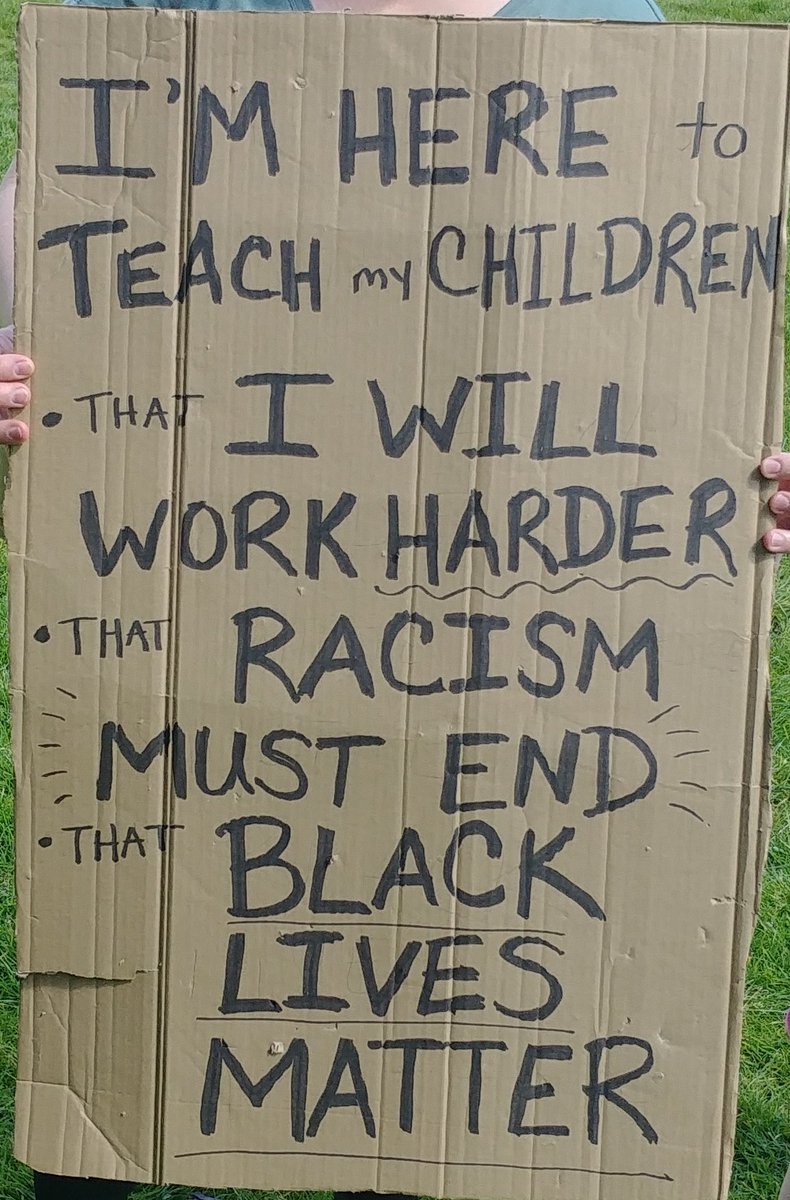 I'M HERE to
TEACH my CHILDREN
• THAT I WILL
WORK HARDER
• THAT RACISM
MUST END
• THAT BLACK
LIVES
MATTER